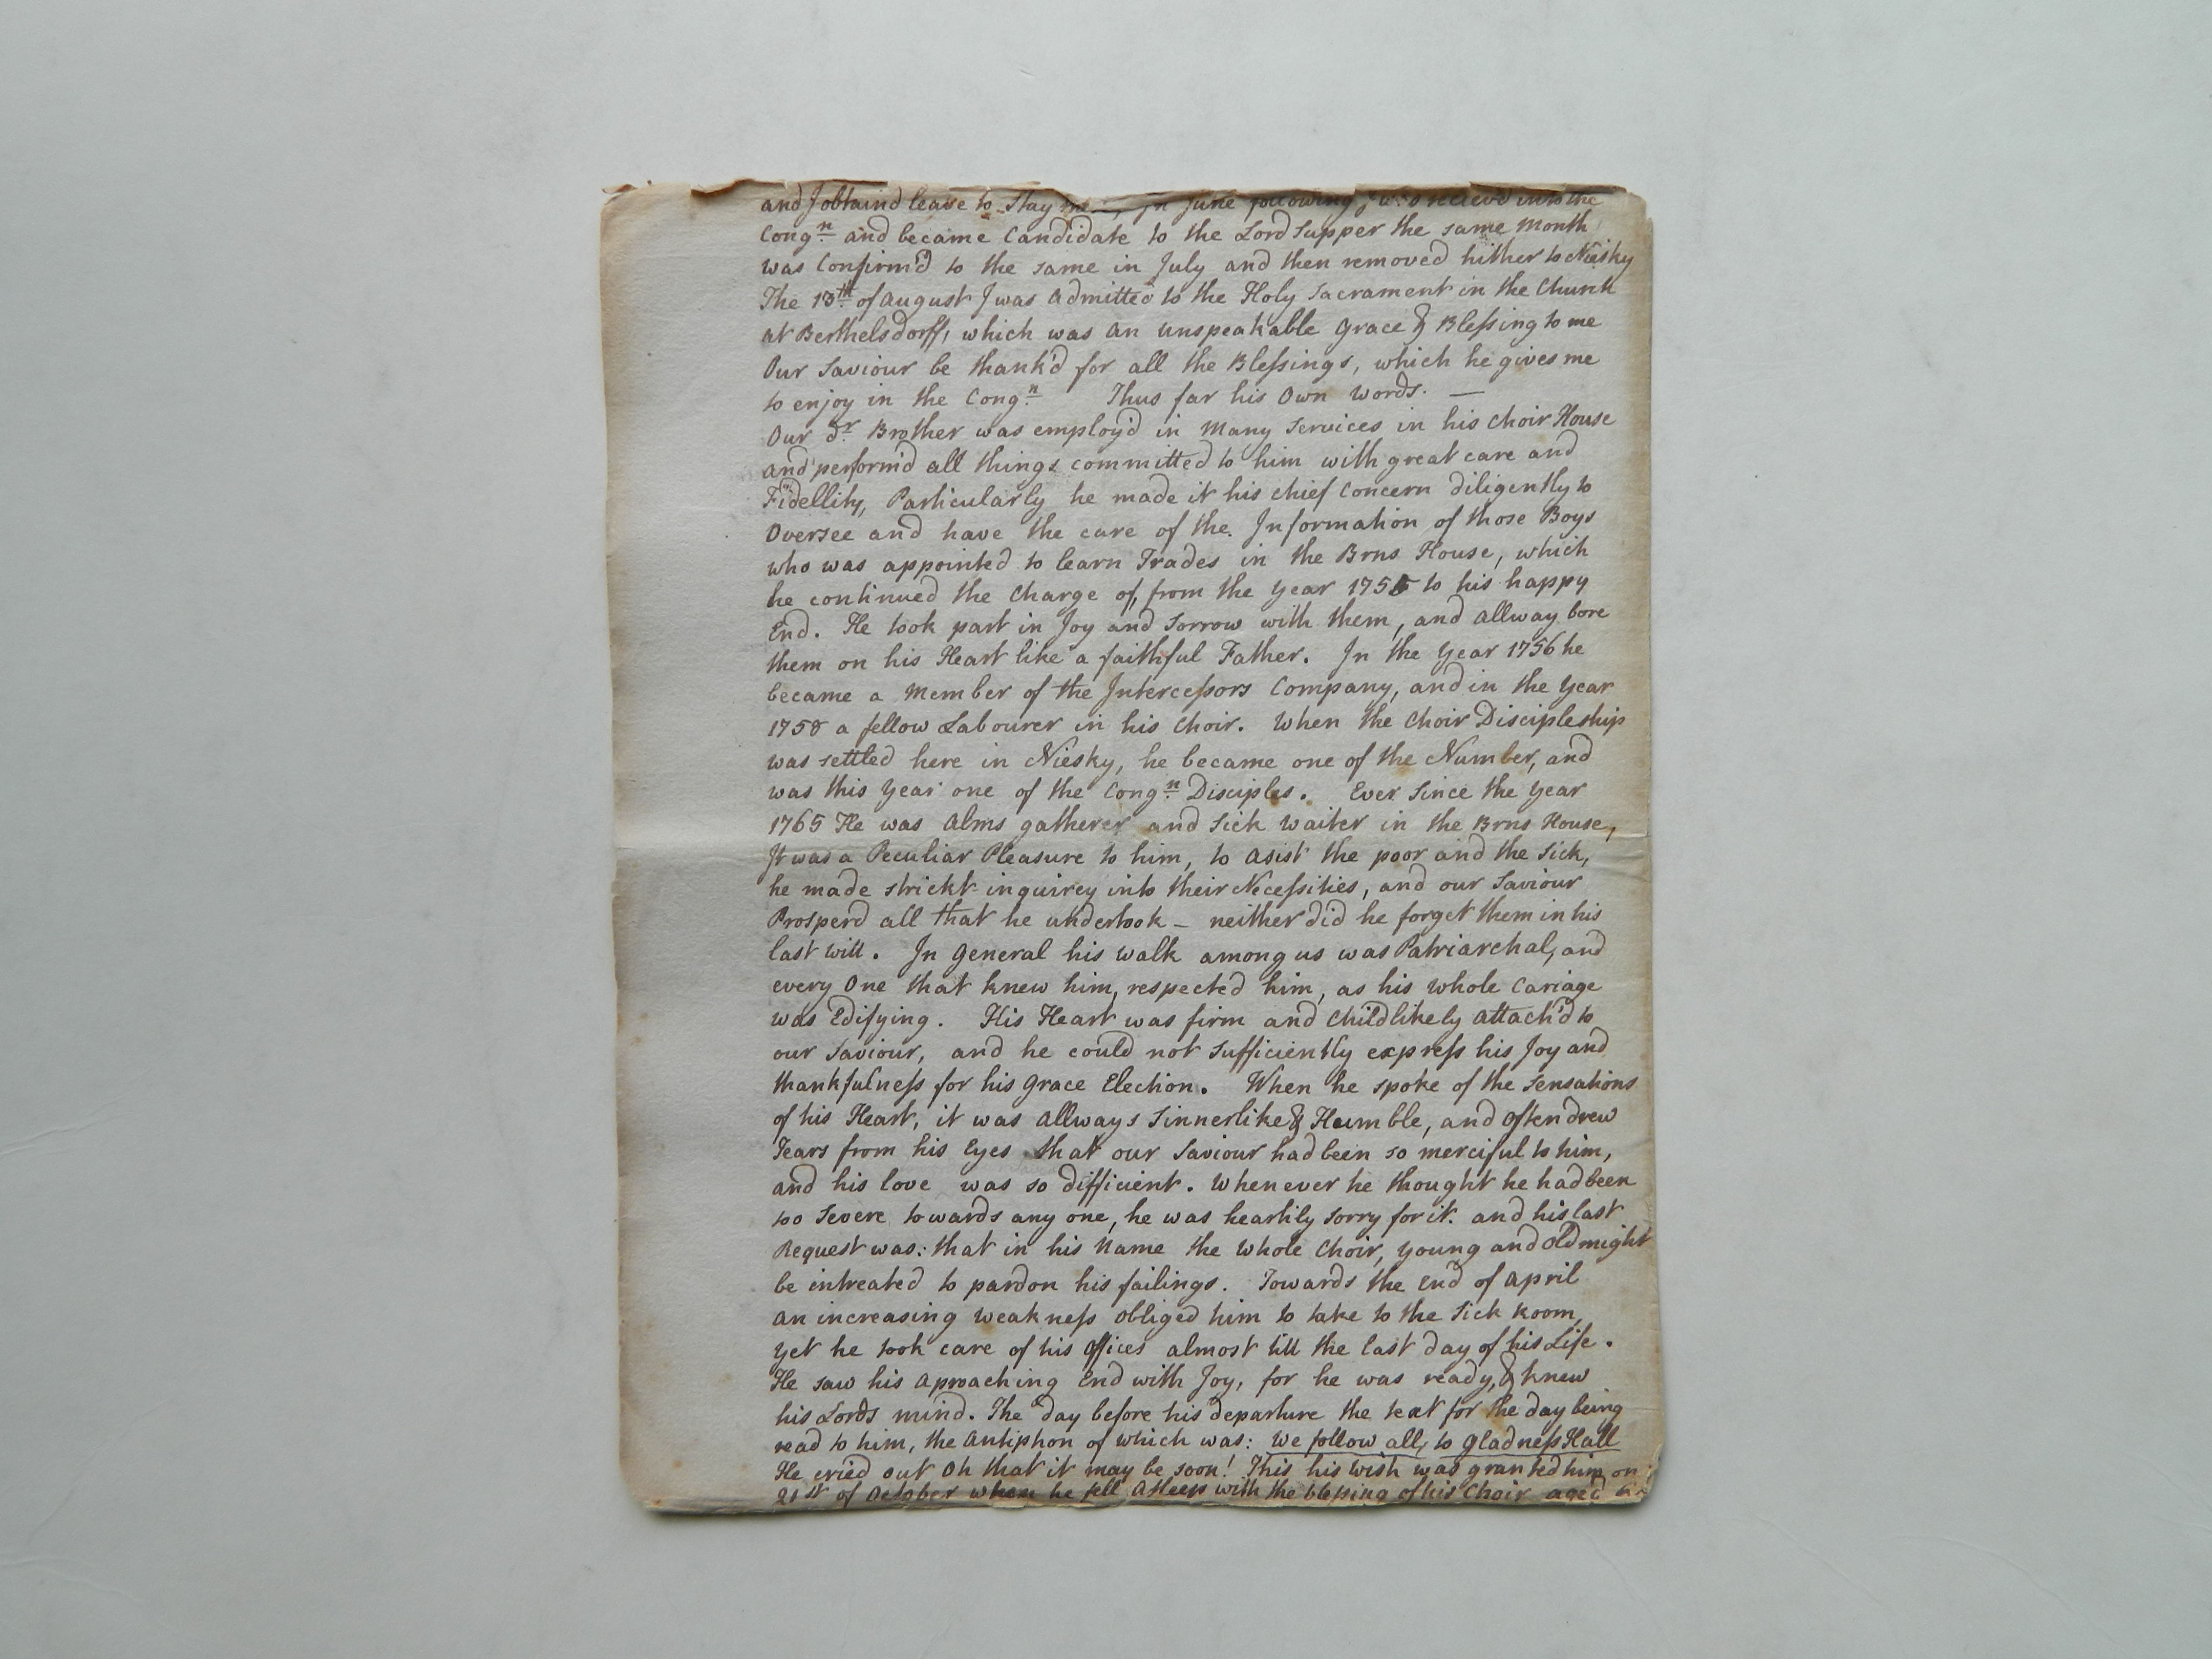 and I obtaind leave to Stay In June following I was recievd into the
Cong.n and became Candidate to the Lord Supper the same Month
was Confirm'd to the same in July and then removed hither to Niesky
The 13th of August I was admitted to the Holy Sacrament in the Church
at Berthelsdorff, which was an unspeakable Grace & Blessing to me
Our Saviour be thank'd for all the Blessings, which he gives me
to enjoy in the Cong.n Thus far his Own Words. —
Our dr. Brother was employ'd in Many Services in his Choir House
and perform'd all things committed to him with great care and
Fidellity, Particularly he made it his chief Concern diligently to
Oversee and have the care of the Information of those Boys
who was appointed to learn Trades in the Brns House, which
he continued the Charge of, from the Year 1755 to his happy
End. He took part in Joy and Sorrow with them, and allway bore
them on his Heart like a faithful Father. In the Year 1756 he
became a Member of the Intercessors Company, and in the Year
1758 a fellow Labourer in his Choir. When the Choir Discipleship
was settled here in Niesky, he became one of the Number, and
was this Year one of the Cong.n Disciples. Ever Since the Year
1765 He was Alms gatherer and Sick Waiter in the Brns House,
It was a Peculiar Pleasure to him, to asist the poor and the Sick,
he made strickt inquirey into their Necessities, and our Saviour
Prosperd all that he undertook – neither did he forget them in his
last will. In General his Walk among us was Patriarchal, and
every One that knew him, respected him, as his whole Cariage
was Edifying. His Heart was firm and Childlikely attach'd to
our Saviour, and he could not Sufficiently express his Joy and
thankfulness for his Grace Election. When he spoke of the Sensations
of his Heart, it was allways Sinnerlike & Humble, and often drew
Tears from his Eyes that our Saviour had been so merciful to him,
and his love was so difficient. Whenever he thought he had been
too Severe towards any one, he was heartily Sorry for it. and his last
Request was: that in his Name the Whole Choir, Young and Old might
be intreated to pardon his failings. Towards the End of April
an increasing Weakness obliged him to take to the Sick Room,
yet he took care of his Offices almost till the last day of his Life.
He saw his Aproaching End with Joy, for he was ready, & knew
his Lords mind. The day before his departure the text for the day being
read to him, the Antiphon of which was: We follow all, to Gladness Hall
He cried out Oh that it may be soon! This his Wish was granted him on
21st of October when he fell Asleep with the blessing of his Choir aged